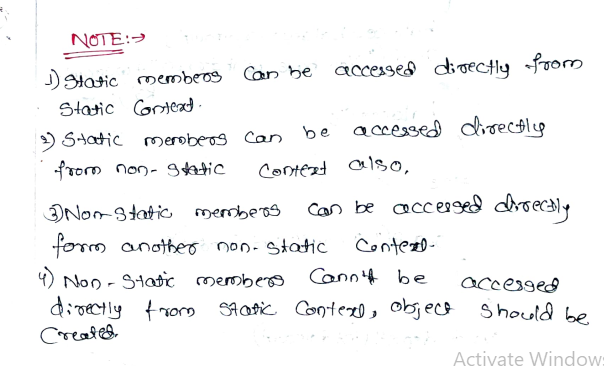 NOTE:→
1) Static members can be accessed directly from
Static Context.
2) Static members can be accessed directly
from non-static context also.
3) Non-static members can be accessed directly
form another non-static context.
4) Non-static members cannot be accessed
directly from static context, object should be
Created.
Activate Windows